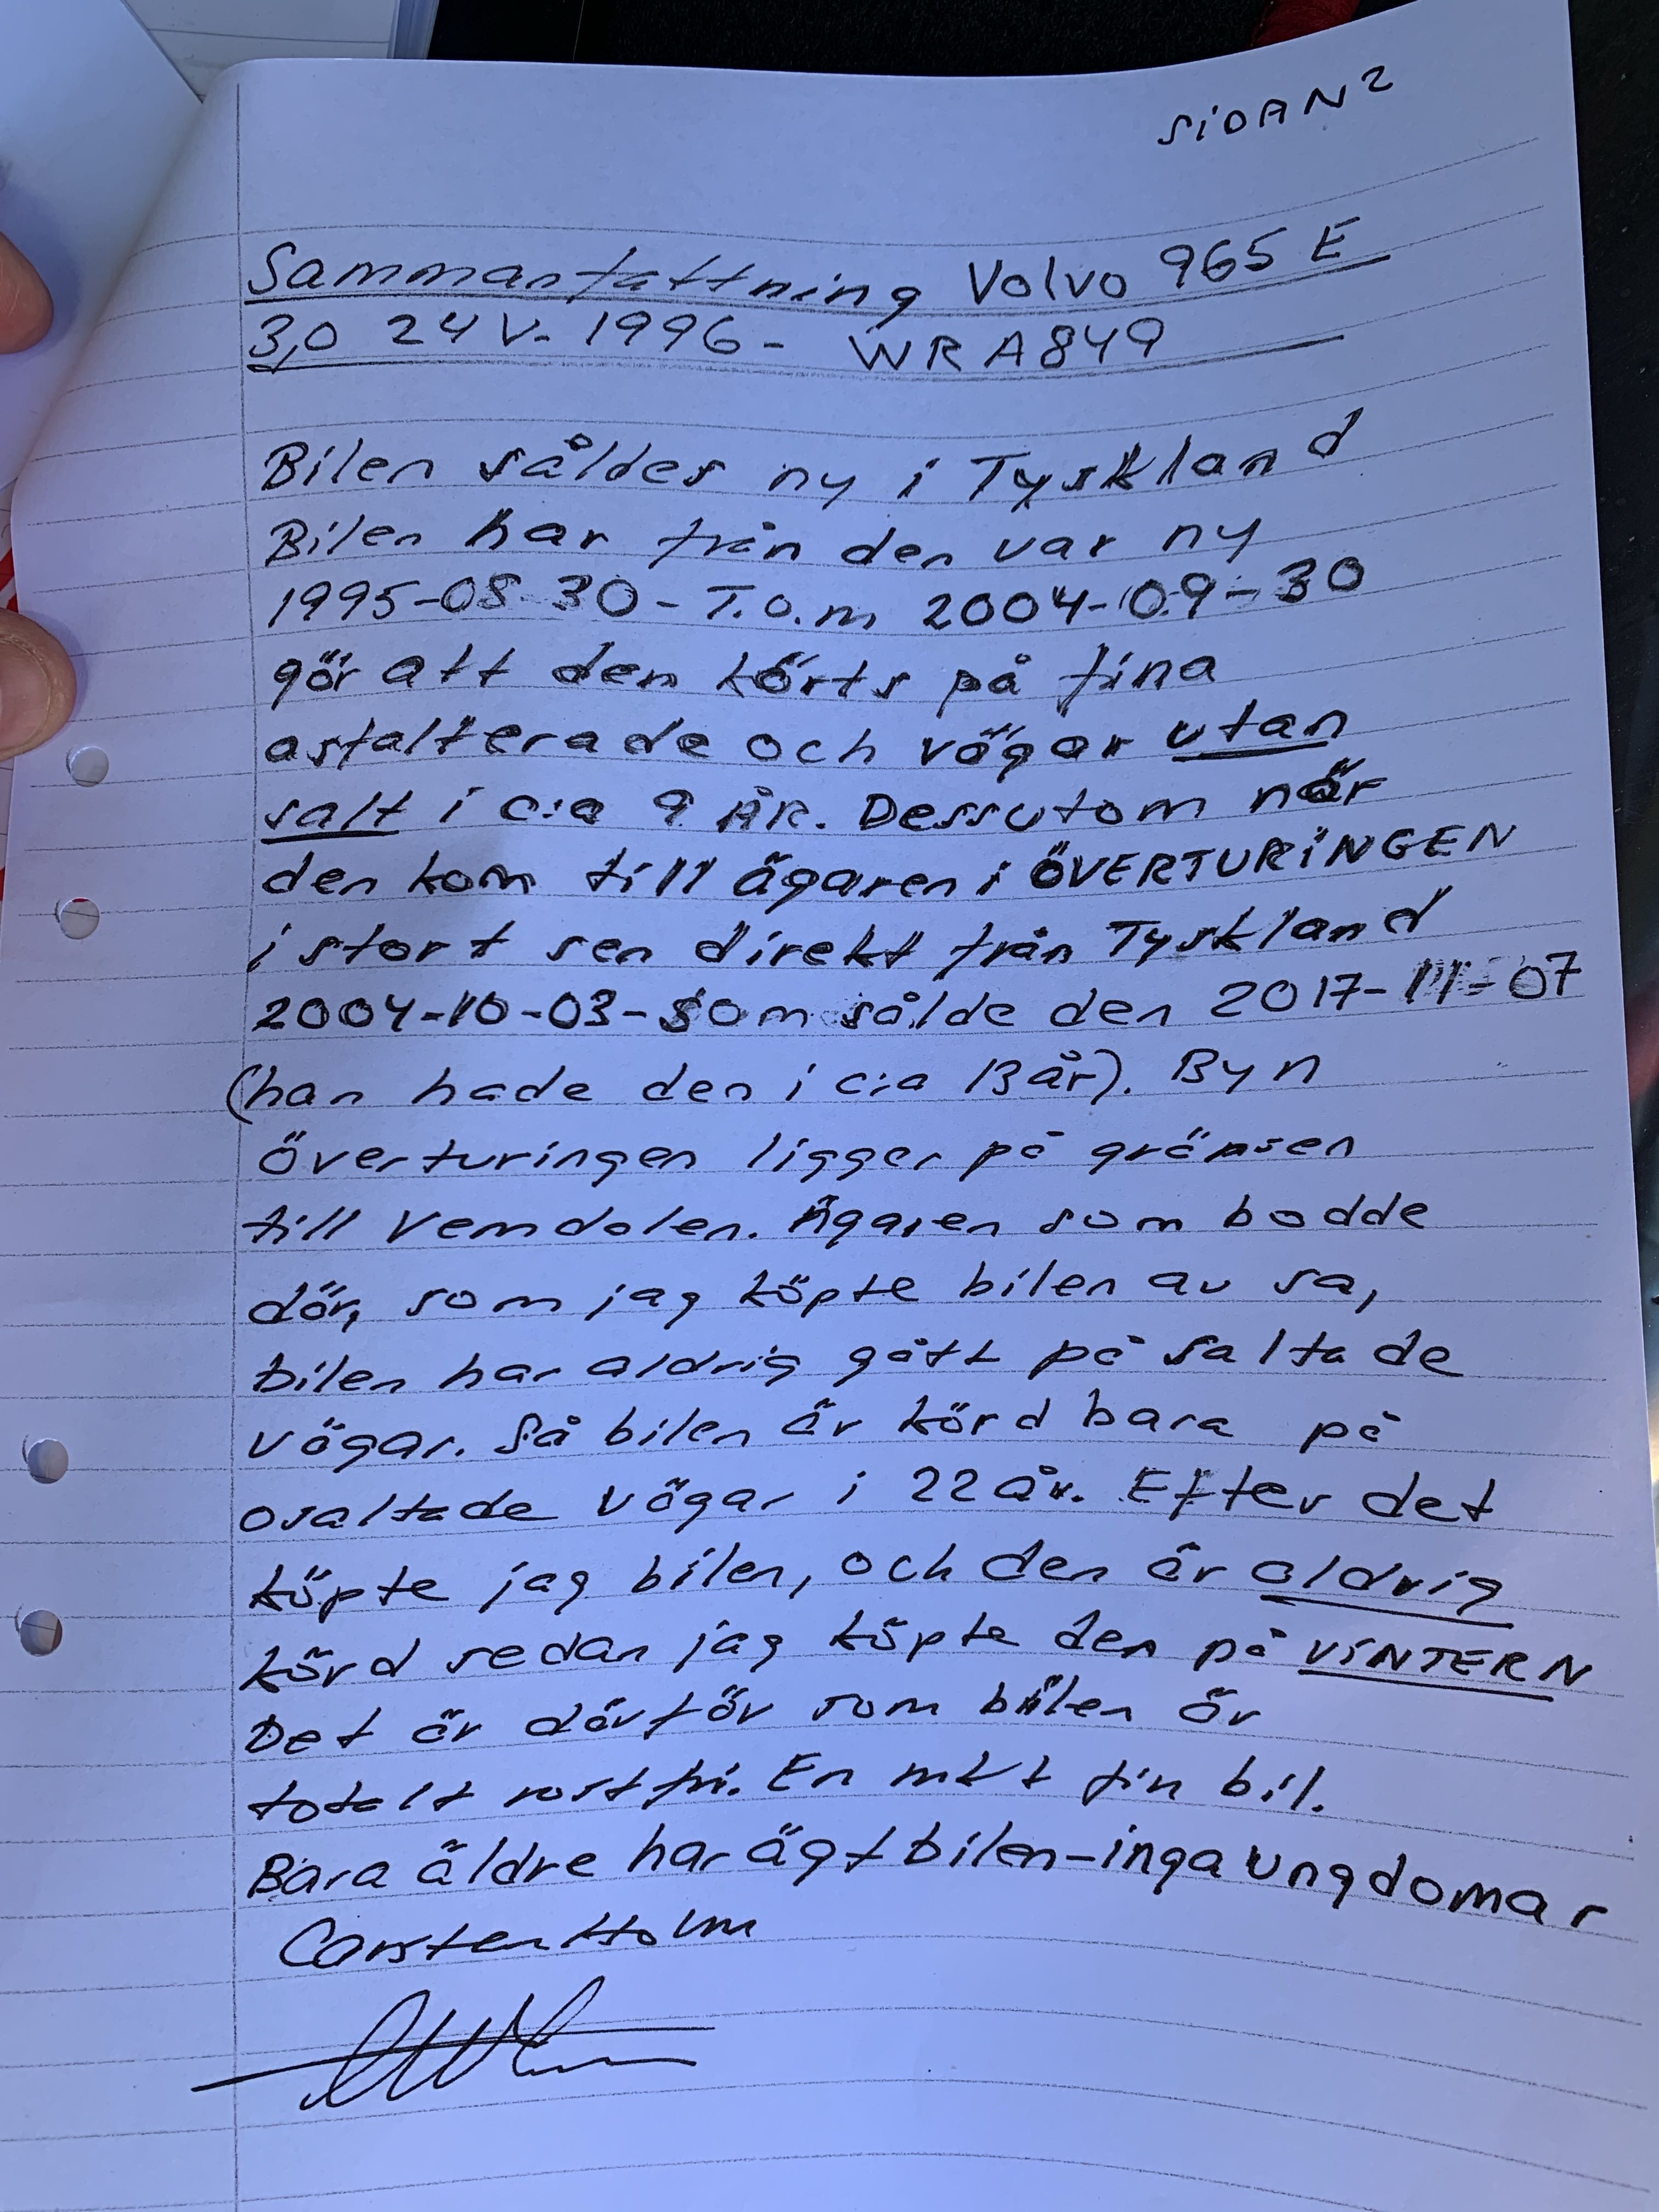 SiDAN 2
Sammanfattning Volvo 965 E
3,0 24 V. 1996 - WRA849
Bilen såldes ny i Tyskland
Bilen har från den var ny
1995-08-30 - T.o.m 2004-09-30
gör att den körts på fina
asfalterade och vägar utan
salt i c:a 9 ÅR. Dessutom när
den kom till ägaren i ÖVERTURiNGEN
i stort sen direkt från Tyskland
2004-10-03 - som sålde den 2017-11-07
(han hade den i c:a 13 år). Byn
överturingen ligger på gränsen
till Vemdalen. Ägaren som bodde
där, som jag köpte bilen av sa,
bilen har aldrig gått på saltade
vägar. Så bilen är körd bara på
osaltade vägar i 22 år. Efter det
köpte jag bilen, och den är aldrig
körd sedan jag köpte den på ViNTERN
Det är därför som bilen är
totalt rostfri. En mkt fin bil.
Bara äldre har ägt bilen - inga ungdomar
Carsten Holm